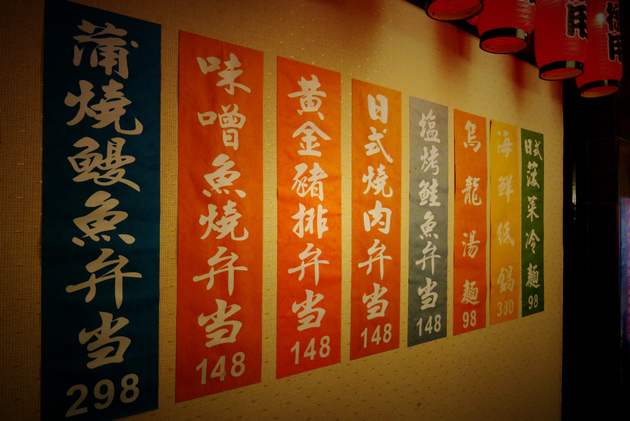 蒲燒鰻魚弁当
298
味噌魚燒弁当
148
黃金豬排弁当
148
日式燒肉弁当
148
塩烤鮭魚弁当
148
烏龍湯麵
98
海鮮紙鍋
380
日式菠菜冷麵
98